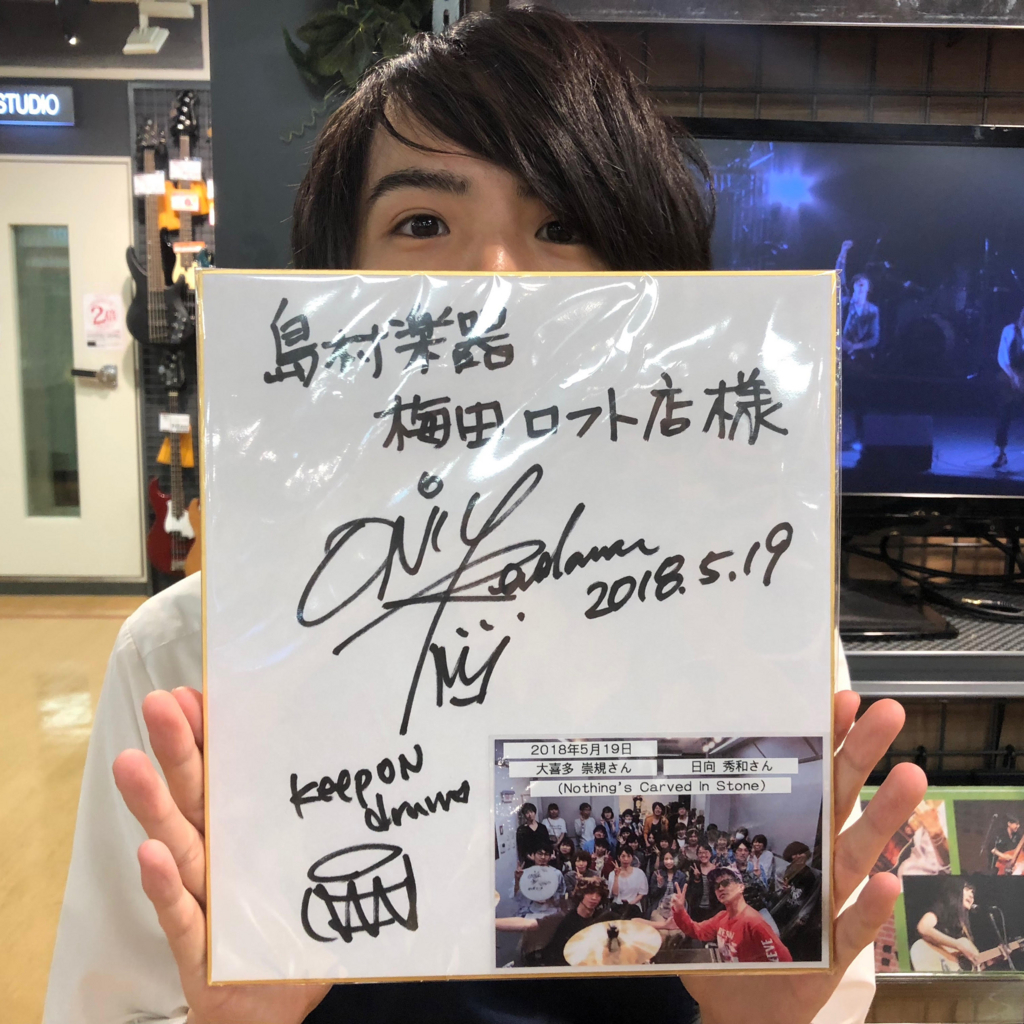 STUDIO
島村楽器
梅田ロフト店様
2018.5.19
keep ON
drums
2018年5月19日
大喜多 崇規さん
日向 秀和さん
(Nothing's Carved In Stone)